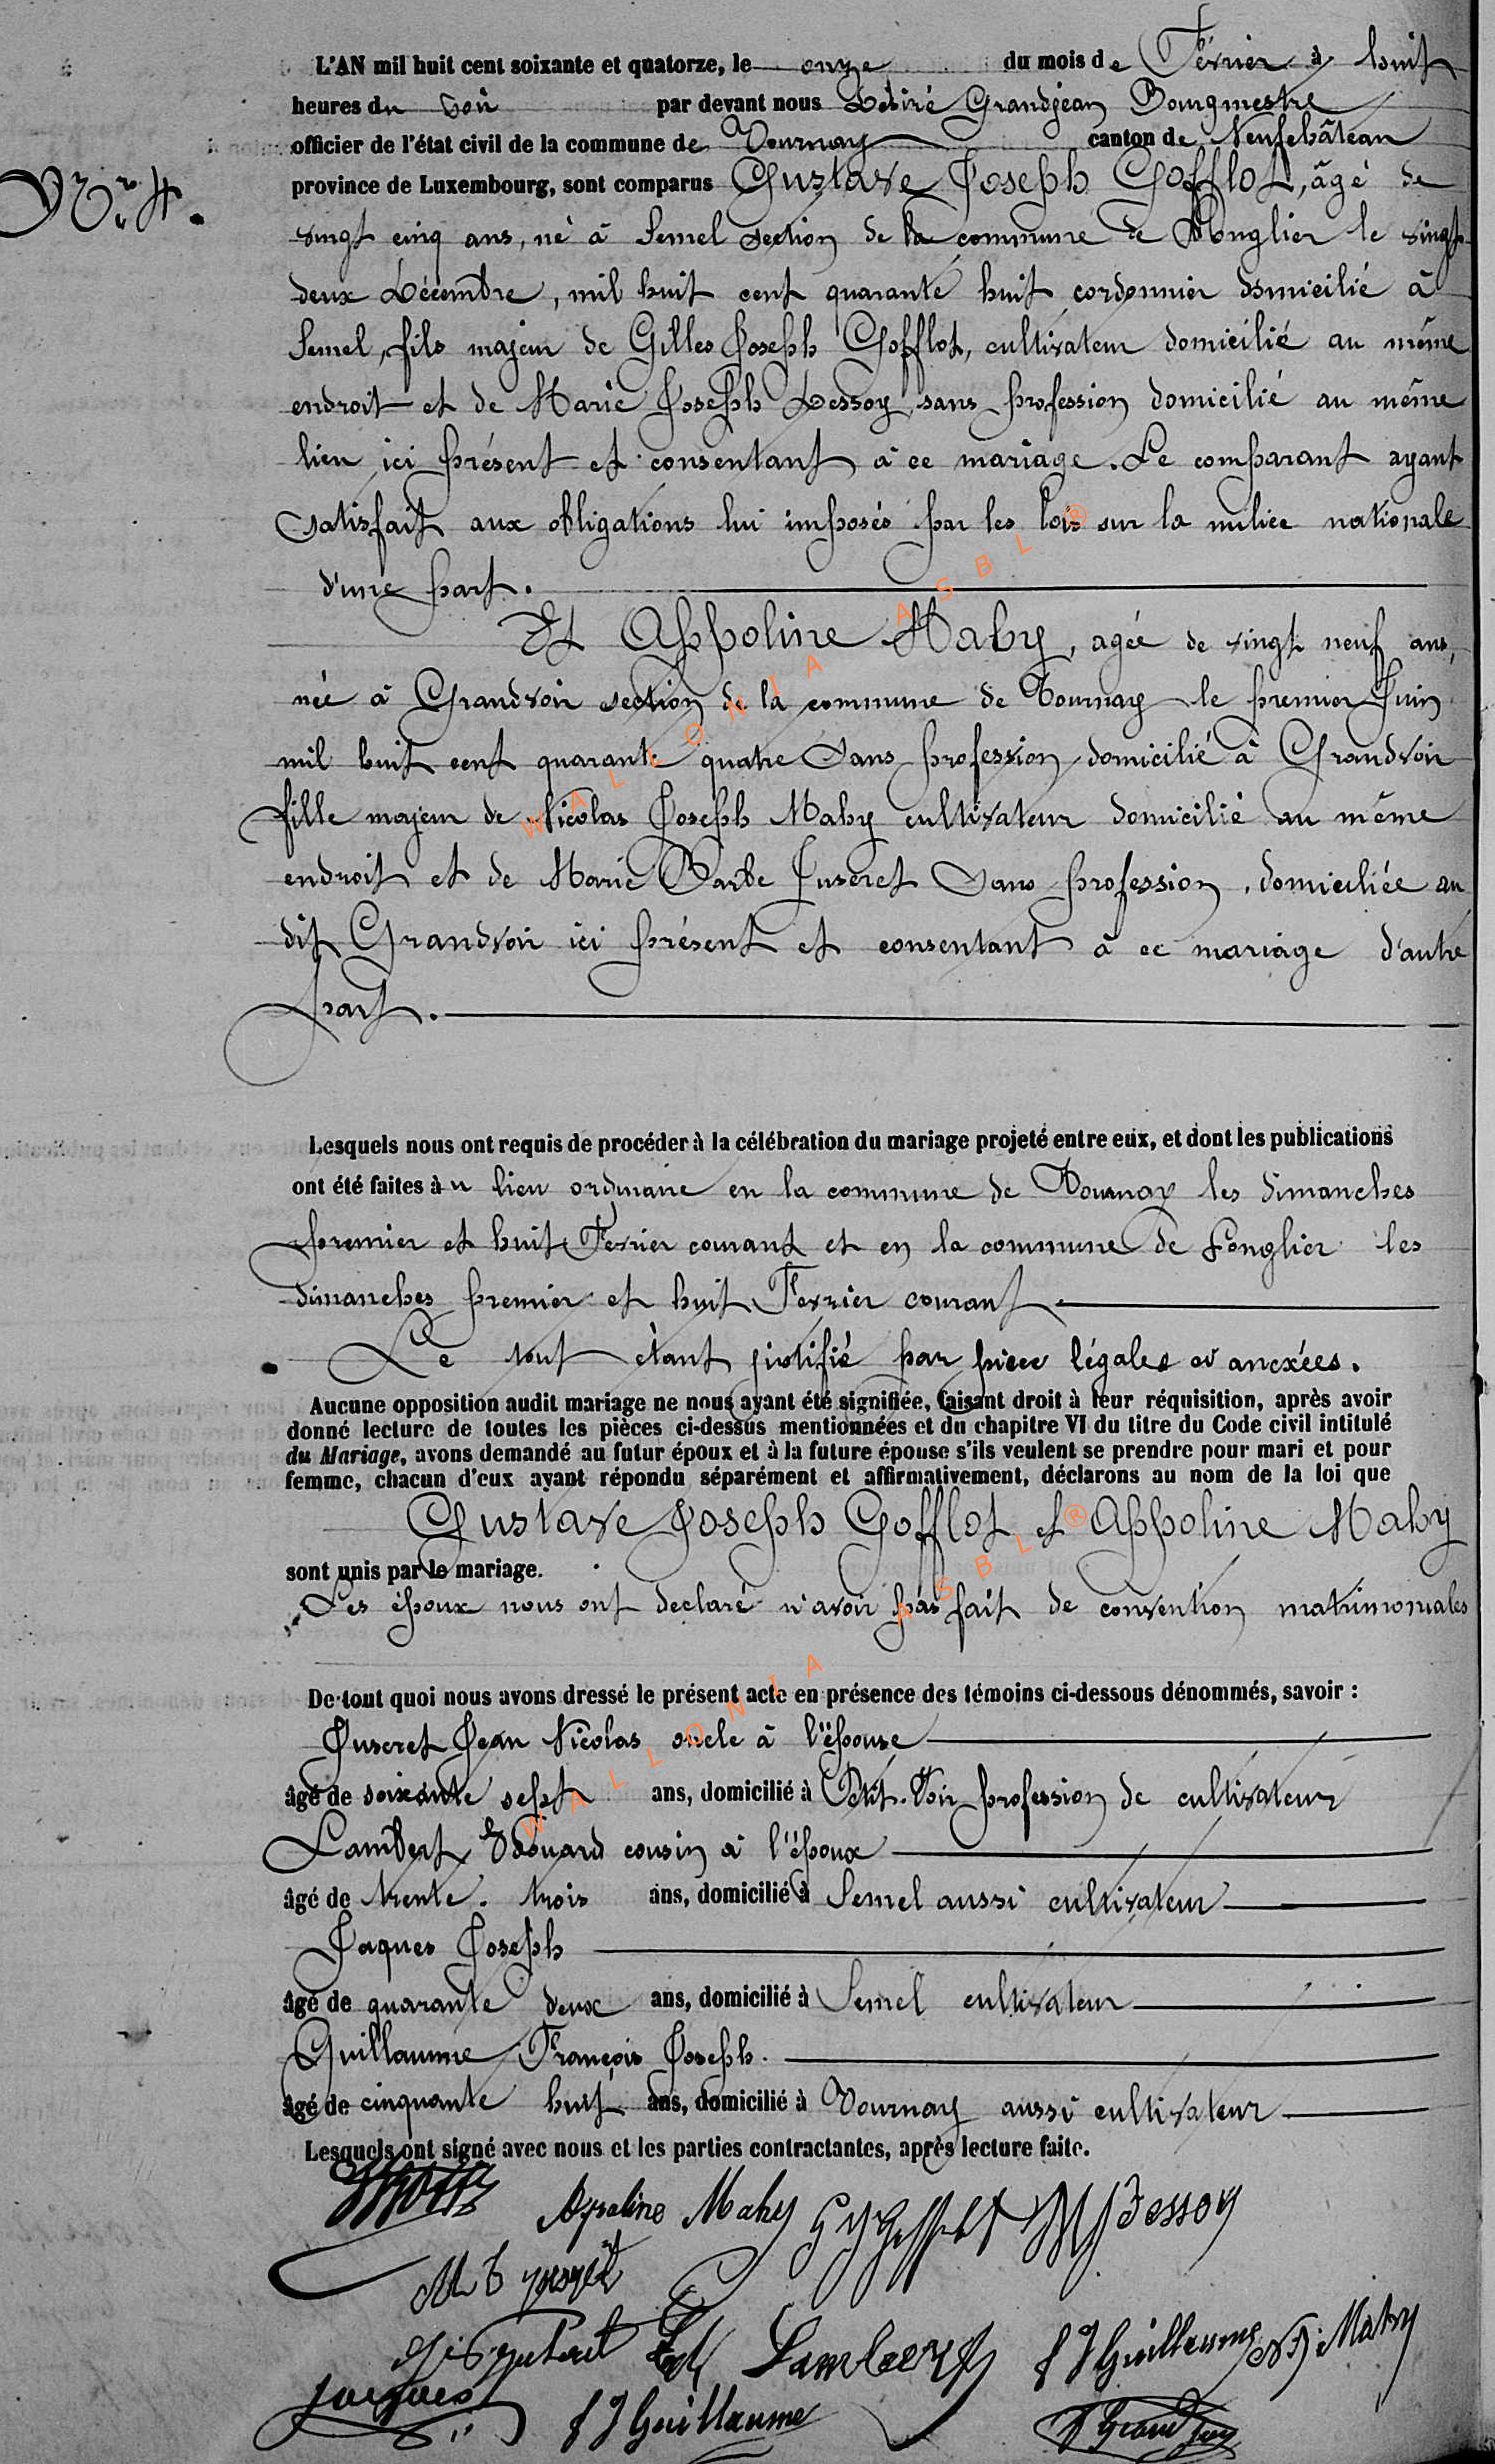 L'AN mil huit cent soixante et quatorze, le onze du mois de Février à huit
heures du soir par devant nous Désiré Grandjean Bourgmestre
officier de l'état civil de la commune de Tournay canton de Neufchâteau
N° 4.
province de Luxembourg, sont comparus Gustave Joseph Gofflot, âgé de
vingt cinq ans, né à Semel section de la commune de Longlier le vingt
deux Décembre, mil huit cent quarante huit cordonnier domicilié à
Semel, fils majeur de Gilles Joseph Gofflot, cultivateur domicilié au même
endroit et de Marie Joseph Dessoy, sans profession domicilié au même
lieu ici présent et consentant à ce mariage. Le comparant ayant
satisfait aux obligations lui imposés par les lois sur la milice nationale
d'une part.
Et Appoline Mahy, agée de vingt neuf ans,
née à Grandvoir section de la commune de Tournay le premier Juin
mil huit cent quarante quatre sans profession domicilié à Grandvoir
fille majeur de Nicolas Joseph Mahy cultivateur domicilié au même
endroit et de Marie Barbe Juseret sans profession, domiciliée au
dit Grandvoir ici présent et consentant à ce mariage d'autre
part.
Lesquels nous ont requis de procéder à la célébration du mariage projeté entre eux, et dont les publications
ont été faites au lieu ordinaire en la commune de Tournay les dimanches
premier et huit Fevrier courant et en la commune de Longlier les
dimanches premier et huit Fevrier courant.
Le tout étant justifié par pièce légales ci anexées.
Aucune opposition audit mariage ne nous ayant été signifiée, faisant droit à leur réquisition, après avoir
donné lecture de toutes les pièces ci-dessus mentionnées et du chapitre VI du titre du Code civil intitulé
du Mariage, avons demandé au futur époux et à la future épouse s'ils veulent se prendre pour mari et pour
femme, chacun d'eux ayant répondu séparément et affirmativement, déclarons au nom de la loi que
Gustave Joseph Gofflot et Appoline Mahy
sont unis par le mariage.
Les époux nous ont declaré n'avoir pas fait de convention matrimoniales
De tout quoi nous avons dressé le présent acte en présence des témoins ci-dessous dénommés, savoir :
Juseret Jean Nicolas oncle à l'épouse
âgé de soixante sept ans, domicilié à Petit-Voir profession de cultivateur
Lambert Edouard cousin à l'époux
âgé de trente-trois ans, domicilié à Semel aussi cultivateur
Jaques Joseph
âgé de quarante deux ans, domicilié à Semel cultivateur
Guillaume François Joseph.
âgé de cinquante huit ans, domicilié à Tournay aussi cultivateur
Lesquels ont signé avec nous et les parties contractantes, après lecture faite.
Apoline Mahy G J Gofflot M J Dessoy
M B
Ed Lambert f J Guillaume N J Mahy
jacques f J Guillaume D Grandjean
WALLONIA ASBL ®
WALLONIA ASBL ®